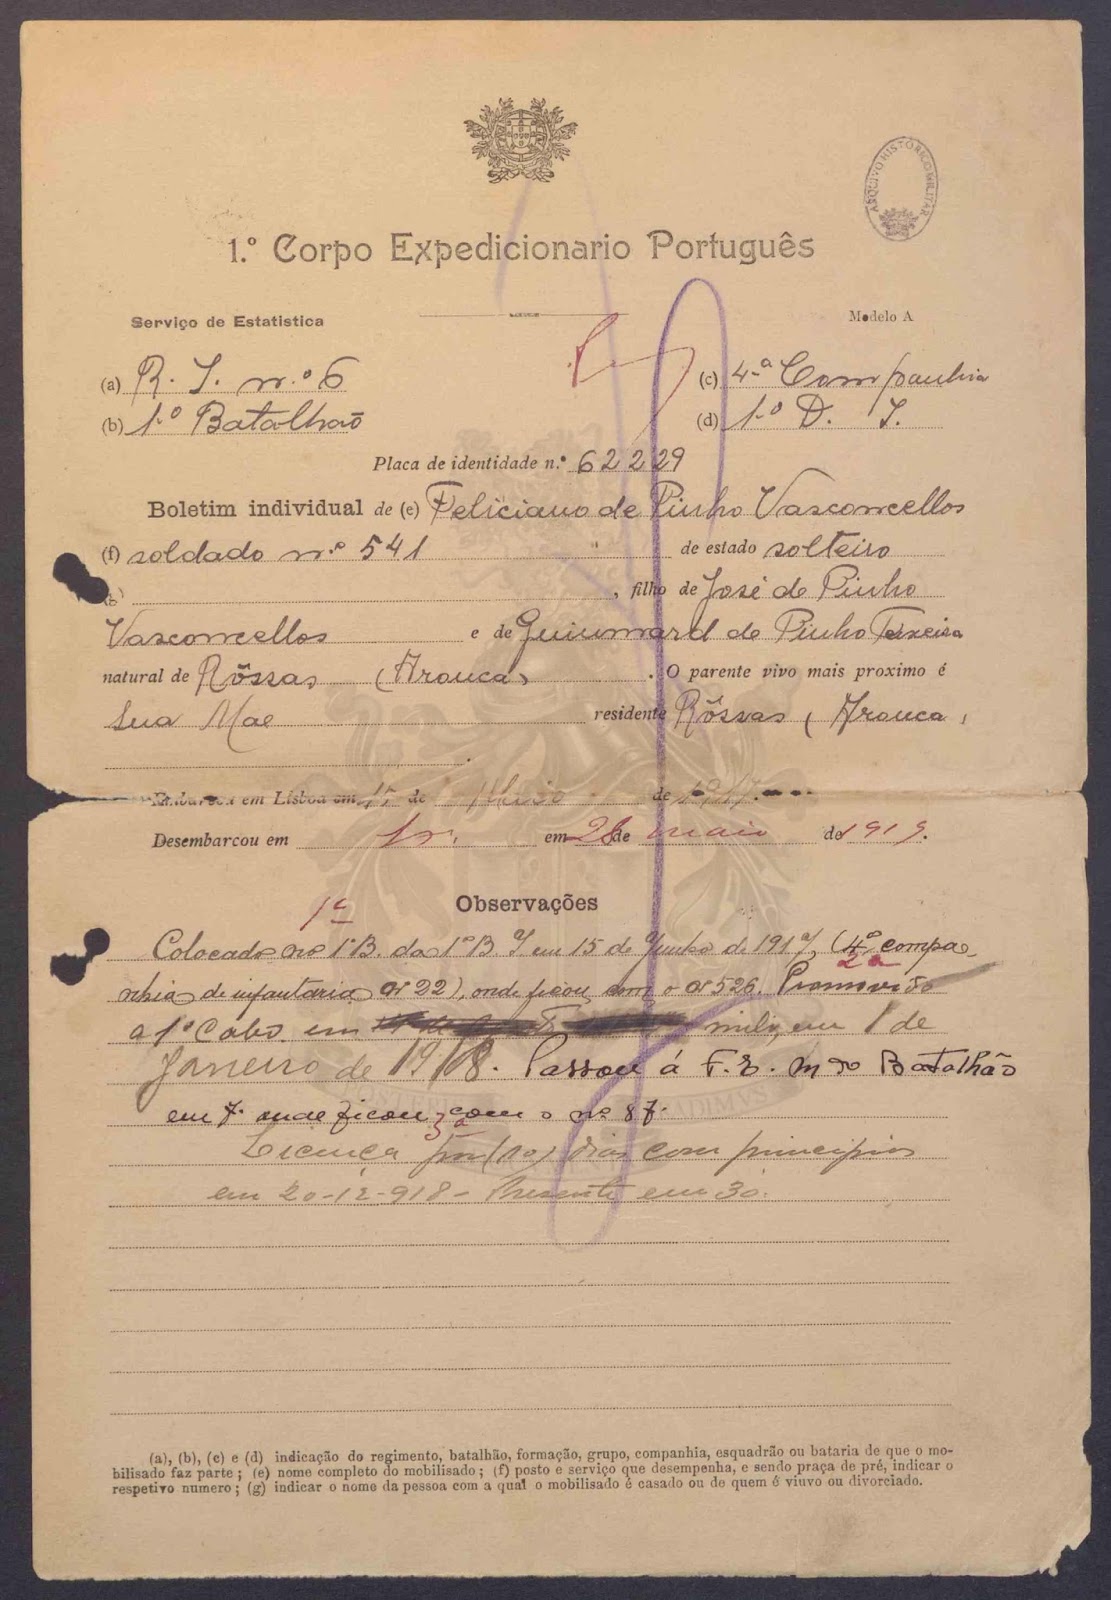 ARQUIVO HISTÓRICO MILITAR
1.º Corpo Expedicionario Português
Serviço de Estatistica
Modelo A
(a) R. I. n.º 6
(c) 4.ª Companhia
(b) 1.º Batalhão
(d) 1.º D. I.
Placa de identidade n.º 62229
Boletim individual de (e) Feliciano de Pinho Vasconcellos
(f) soldado n.º 541 de estado solteiro
(g) , filho de José de Pinho
Vasconcellos e de Guiumard de Pinho Teixeira
natural de Rôssas (Arouca) . O parente vivo mais proximo é
Sua Mae residente Rôssas (Arouca)
Embarcou em Lisboa em de de
Desembarcou em em 28 de maio de 1919.
Observações
Colocado no 1º B. da 1ª B. I em 15 de Junho de 1917, (4ª compa-
nhia de infantaria nº 22), onde ficou com o nº 526. Promovido
a 1º Cabo em milº, em 1 de
Janeiro de 1918. Passou á F. E. m do Batalhão
em 7. onde ficou com o nº 87.
Licença por dias com principio
em 20-12-918 - Presente em 30.
(a), (b), (c) e (d) indicação do regimento, batalhão, formação, grupo, companhia, esquadrão ou bataria de que o mo-
bilisado faz parte; (e) nome completo do mobilisado; (f) posto e serviço que desempenha, e sendo praça de pré, indicar o
respetivo numero; (g) indicar o nome da pessoa com a qual o mobilisado é casado ou de quem é viuvo ou divorciado.